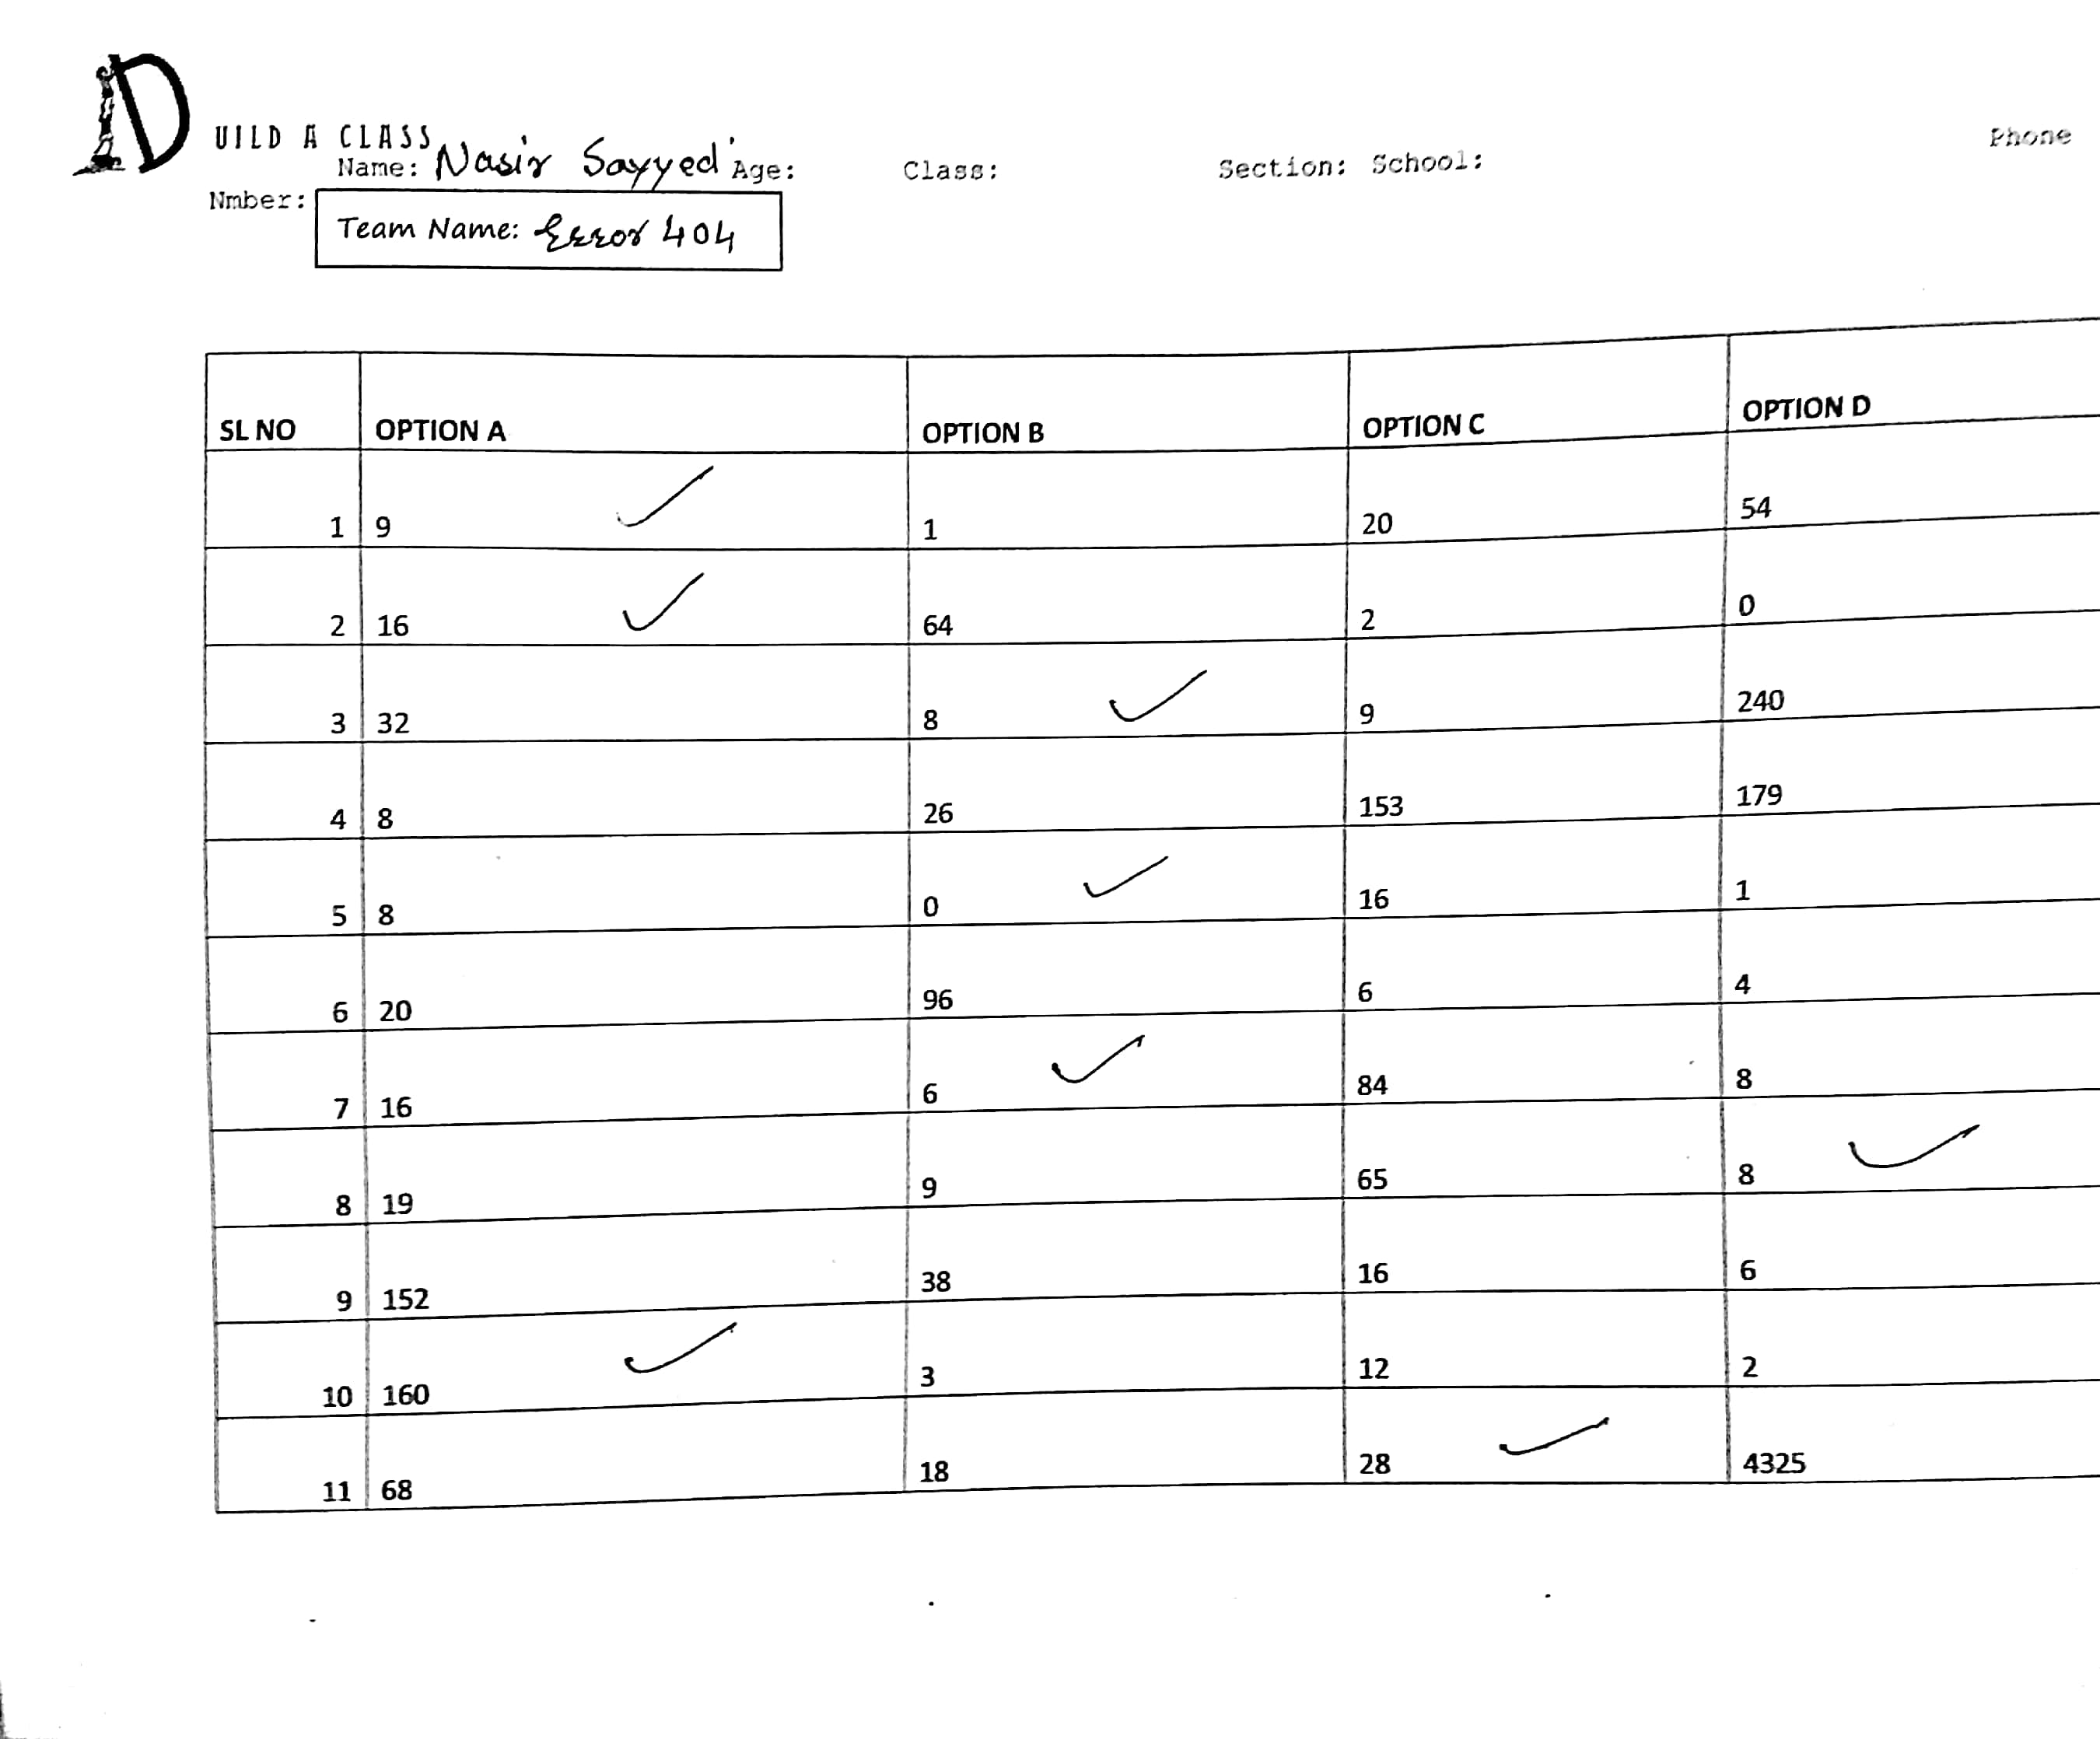 D UILD A CLASS
Name: Nasir Sayyed Age: Class: Section: School: Phone
Nmber:
Team Name: Error 404
SL NO OPTION A OPTION B OPTION C OPTION D
1 9 ✓ 1 20 54
2 16 ✓ 64 2 0
3 32 8 ✓ 9 240
4 8 26 153 179
5 8 0 ✓ 16 1
6 20 96 6 4
7 16 6 ✓ 84 8
8 19 9 65 8 ✓
9 152 38 16 6
10 160 ✓ 3 12 2
11 68 18 28 ✓ 4325